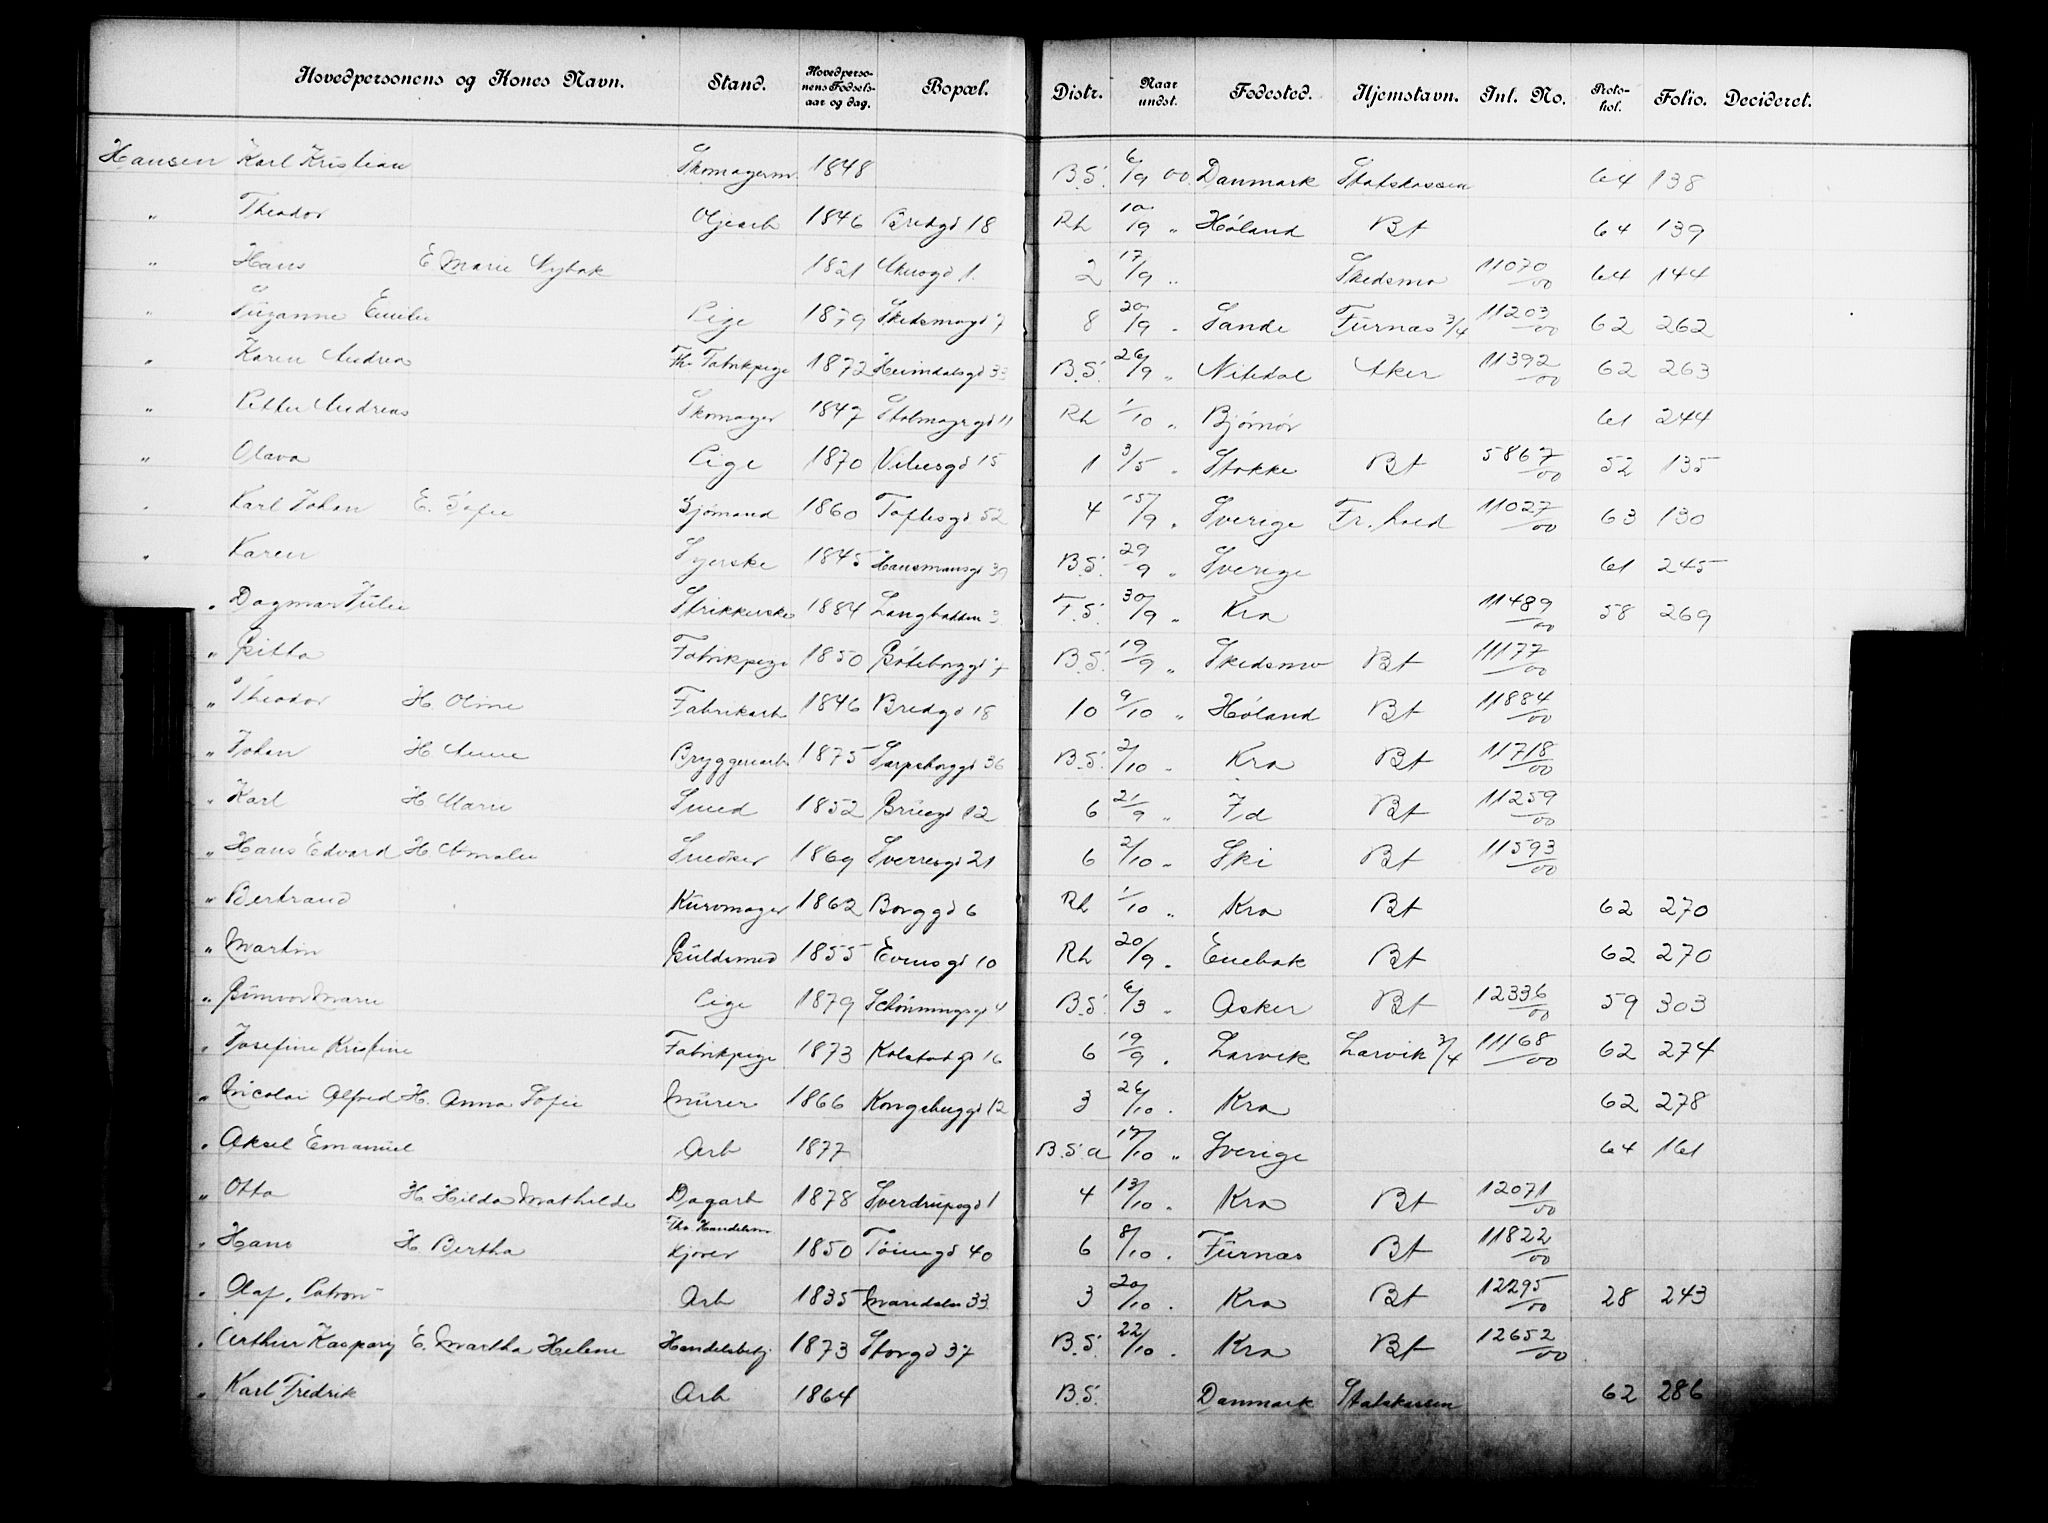 Hovedpersonens og Kones Navn. Stand. Hovedperso-nens Fødsels-aar og dag. Bopæl. Distr. Naar undst. Fødested. Hjemstavn. Inl. No. Proto-kol. Folio. Decideret.
Hansen Karl Kristian Skomagerm. 1848 B.S. 6/9 00 Danmark Statskassen 64 138
" Theodor Oljearb 1846 Bredgd 18 Rh 10/9 " Høland Bt 64 139
" Hans E Marie Nybak 1821 Akersgd 1. 2 17/9 " Skedsmo 11070/00 64 144
" Suzanne Emilie Pige 1879 Skedsmogd 7 8 20/9 " Sande Furnas 3/4 11203/00 62 262
" Karen Andrea Fh. Fabrikpige 1872 Heimdalsgd 33 B.S. 26/9 " Nitedal Aker 11392/00 62 263
" Petter Andreas Skomager 1847 Stolmagergd 11 Rh 1/10 " Bjørnør 61 244
" Olava Pige 1870 Vibesgd 15 1 3/5 " Stokke Bt 5867/00 52 135
" Karl Johan E. Sofie Sjømand 1860 Toftesgd 52 4 15/9 " Sverige Fr.hald 11027/00 63 130
" Karen Syerske 1845 Hausmansgd 39 B.S. 29/9 " Sverige 61 245
" Dagmar Julie Strikkerske 1884 Langbakken 3 F.S. 30/9 " Kra 11489/00 58 269
" Gitta Fabrikpige 1850 Gøteborggd 7 B.S. 19/9 " Skedsmo Bt 11177/00
" Theodor H. Oline Fabrikarb 1846 Bredgd 18 10 9/10 " Høland Bt 11884/00
" Johan H Anne Bryggeriarb 1875 Sarpsborggd 36 B.S. 2/10 " Kra Bt 11718/00
" Karl H Marie Smed 1852 Brugd 12 6 21/9 " Id Bt 11259/00
" Hans Edvard H Amalie Snedker 1869 Sverresgd 21 6 2/10 " Ski Bt 11593/00
" Bertrand Kurvmager 1862 Borggd 6 Rh 1/10 " Kra Bt 62 270
" Martin Guldsmed 1855 Evensgd 10 Rh 20/9 " Enebak Bt 62 270
" Gunvor Marie Pige 1879 Schønningsgd 4 B.S. 6/3 " Asker Bt 12336/00 59 303
" Josefine Kristine Fabrikpige 1873 Kolstadgd 16 6 19/9 " Larvik Larvik 3/4 11168/00 62 274
" Nicolai Alfred H. Anna Sofie Murer 1866 Kongsbuggd 12 3 26/10 " Kra 62 278
" Aksel Emanuel Arb 1877 B.S.a 17/10 " Sverige 64 161
" Otto H Hilda Mathilde Dagarb 1878 Sverdrupsgd 1 4 13/10 " Kra Bt 12071/00
" Hans H. Bertha Fhv. Handelsm. Kjører 1850 Tøiengd 40 6 8/10 " Furnas Bt 11822/00
" Olaf "Patron" Arb 1835 Maridalsv 33 3 20/10 " Kra Bt 12295/00 28 243
" Arthur Kaspary E. Martha Helene Handelsbetj 1873 Storgd 37 B.S. 22/10 " Kra Bt 12652/00
" Karl Fredrik Arb 1864 B.S. Danmark Statskassen 62 286